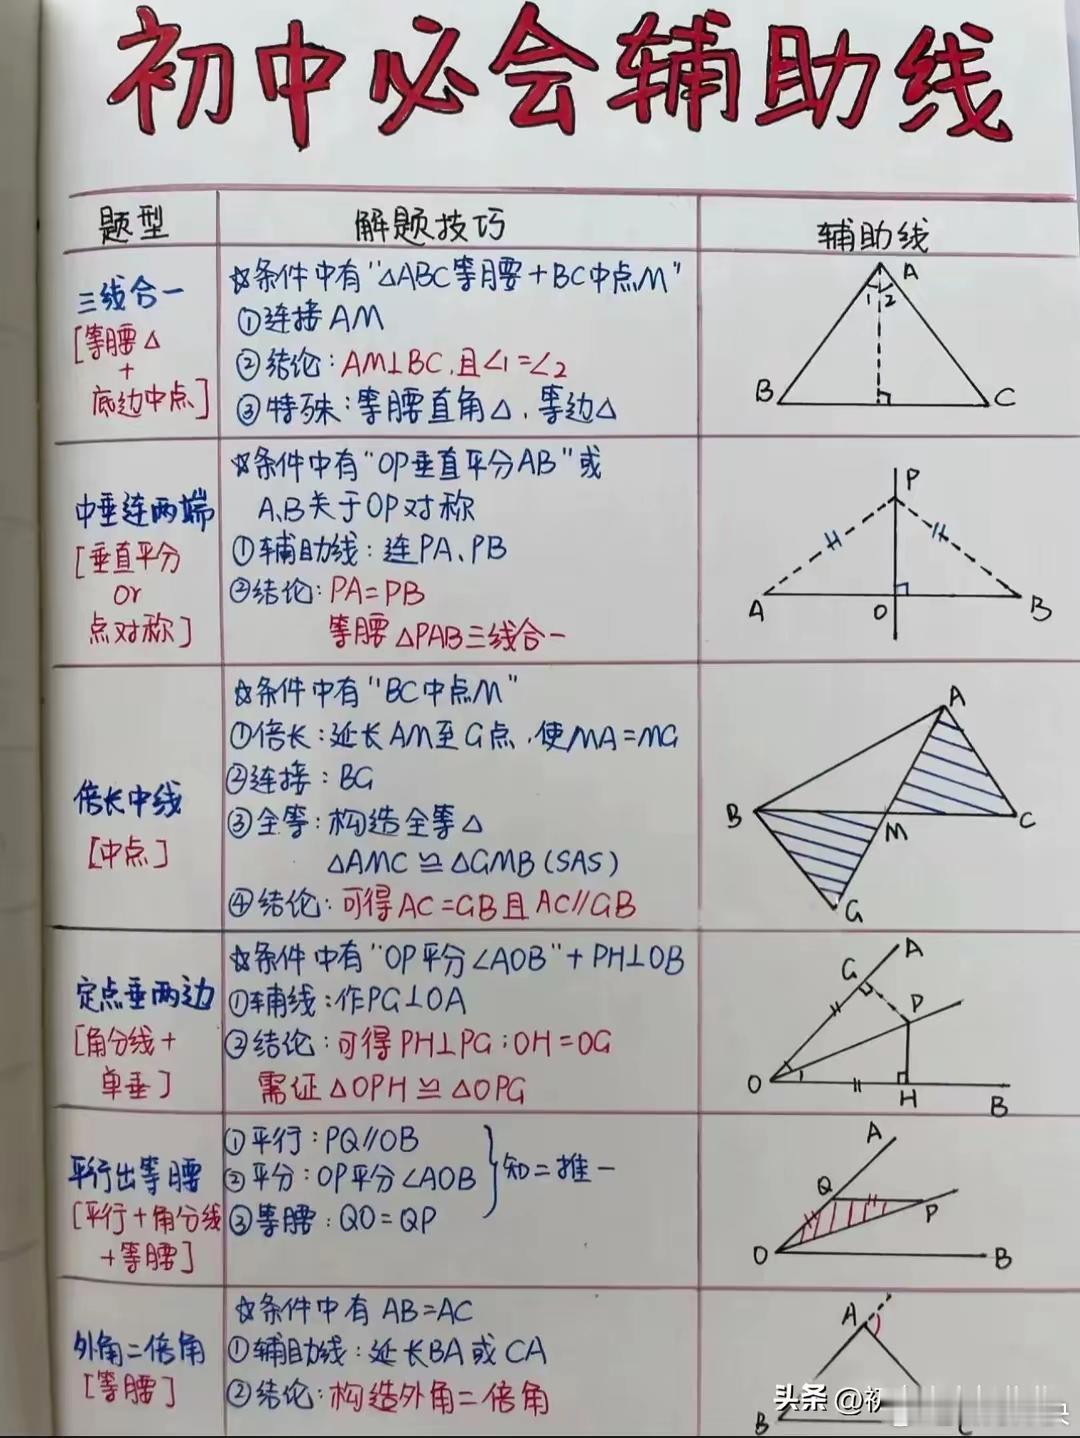 初中必会辅助线
题型
解题技巧
辅助线
三线合一
[等腰△
+
底边中点]
☆条件中有"△ABC等腰+BC中点M"
①连接AM
②结论:AM⊥BC,且∠1=∠2
③特殊:等腰直角△,等边△
A
1 2
B
C
中垂连两端
[垂直平分
or
点对称]
☆条件中有"OP垂直平分AB"或
A、B关于OP对称
①辅助线:连PA、PB
②结论:PA=PB
等腰△PAB三线合一
P
A
O
B
倍长中线
[中点]
☆条件中有"BC中点M"
①倍长:延长AM至G点,使MA=MG
②连接:BG
③全等:构造全等△
△AMC≌△GMB(SAS)
④结论:可得AC=GB且AC∥GB
A
B
M
C
G
定点垂两边
[角分线+
单垂]
☆条件中有"OP平分∠AOB"+PH⊥OB
①辅线:作PG⊥OA
②结论:可得PH⊥PG;OH=OG
需证△OPH≌△OPG
A
G
P
O
H
B
平行出等腰
[平行+角分线
+等腰]
①平行:PQ∥OB
②平分:OP平分∠AOB
③等腰:QO=QP
知二推一
A
Q
P
O
B
外角二倍角
[等腰]
☆条件中有AB=AC
①辅助线:延长BA或CA
②结论:构造外角二倍角
A
B
头条 @初